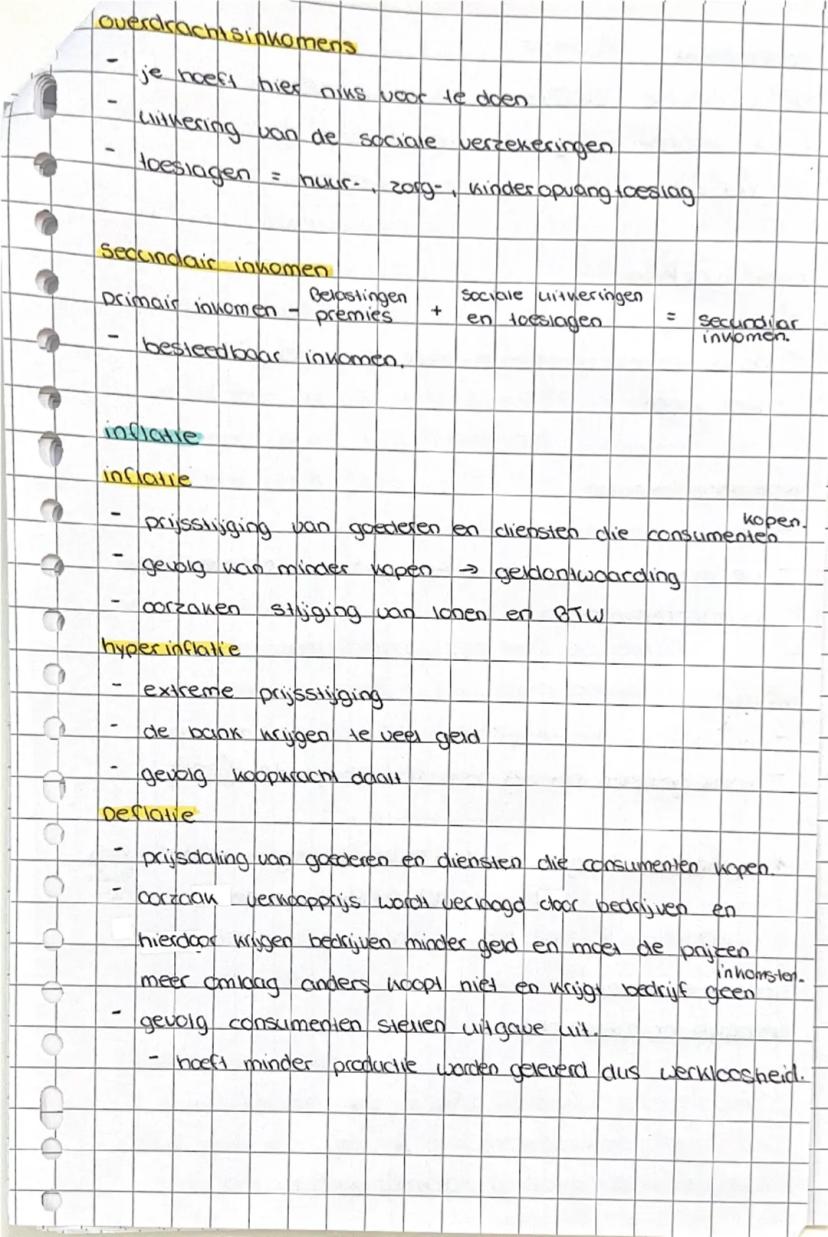 overdrachtsinkomens
- je hoeft hier niks voor te doen
- uitkering van de sociale verzekeringen
- toeslagen = huur-, zorg-, kinderopvangtoeslag
Secundair inkomen
primair inkomen - Belastingen premies + sociale uitkeringen en toeslagen = secundiar inkomen.
- besteedbaar inkomen.
inflatie
inflatie
- prijsstijging van goederen en diensten die consumenten kopen.
- gevolg van minder kopen → geldontwaarding
- oorzaken stijging van lonen en BTW
hyperinflatie
- extreme prijsstijging
- de bank krijgen te veel geld
- gevolg koopkracht daalt
Deflatie
- prijsdaling van goederen en diensten die consumenten kopen.
- oorzaak verkoopprijs wordt verlaagd door bedrijven en
hierdoor krijgen bedrijven minder geld en moet de prijzen
meer omlaag anders koopt niet en krijgt bedrijf geen inkomsten.
- gevolg consumenten stellen uitgave uit.
- hoeft minder productie worden geleverd dus werkloosheid.